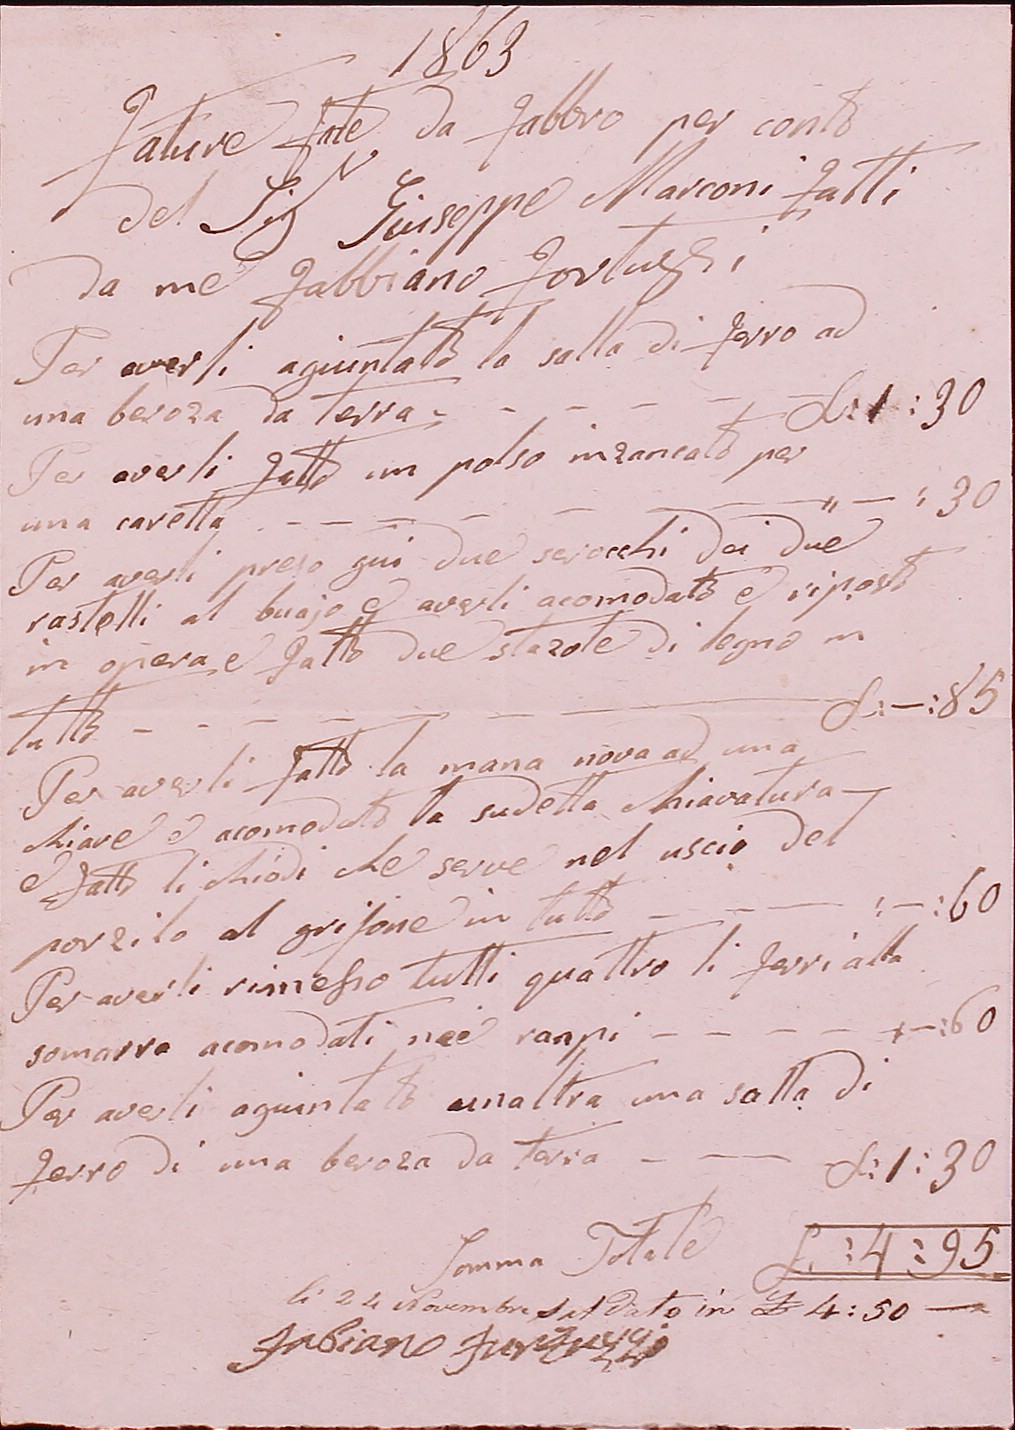 1863
Fature fate da fabbro per conto
del Sig Giuseppe Marconi fatti
da me Fabbiano Fortuzzi
Per averli agiuntato la salla di ferro ad
una beroza da terra - - - - - L: 1 : 30
Per averli fatto un polso inzancato per
una caretta - - - - - " — : 30
Per averli preso gui due serocchi dei due
rastelli al buajo e averli acomodato e riposto
in opera e fatto due stazole di legno in
tutto - - - - - L: — : 85
Per averli fatto la mana nova ad una
chiave e acomodato la sudetta chiavatura
e fatto li chiodi che serve nel uscio del
porzilo al grifone in tutto - - - : — : 60
Per averli rimesso tutti quattro li ferri alla
somarra acomodati nei ranpi - - - - - : 60
Per averli agiuntato unaltra una salla di
ferro di una beroza da terra - - - L: 1 : 30
Somma Totale L. : 4 : 95
li 24 Novembre saldato in L 4 : 50 —
Fabiano Furtuzzi